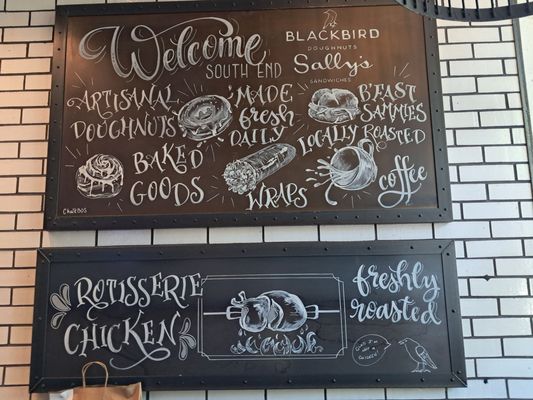 Welcome
SOUTH END
BLACKBIRD
DOUGHNUTS
Sally's
SANDWICHES
ARTISANAL
DOUGHNUTS
MADE
fresh
DAILY
B'FAST
SAMMIES
LOCALLY ROASTED
coffee
BAKED
GOODS
WRAPS
ROTISSERIE
CHICKEN
freshly
roasted